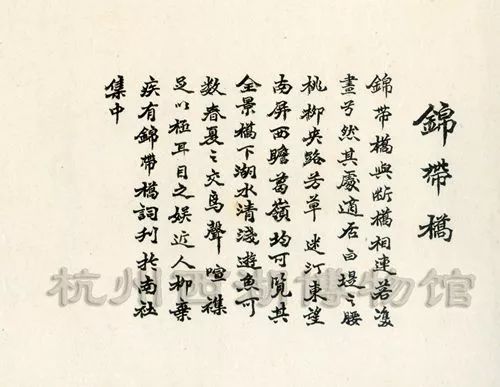 錦帶橋
錦帶橋與斷橋相連若
畫兮然其處適居白堤之腰
桃柳夾路芳草迷汀東望
南屏西瞻葛嶺均可覽其
全景橋下湖水清淺遊魚可
數春夏之交鳥聲喧襍
足以極耳目之娛近人柳棄
疾有錦帶橋詞刊於南社
集中
杭州西湖博物馆